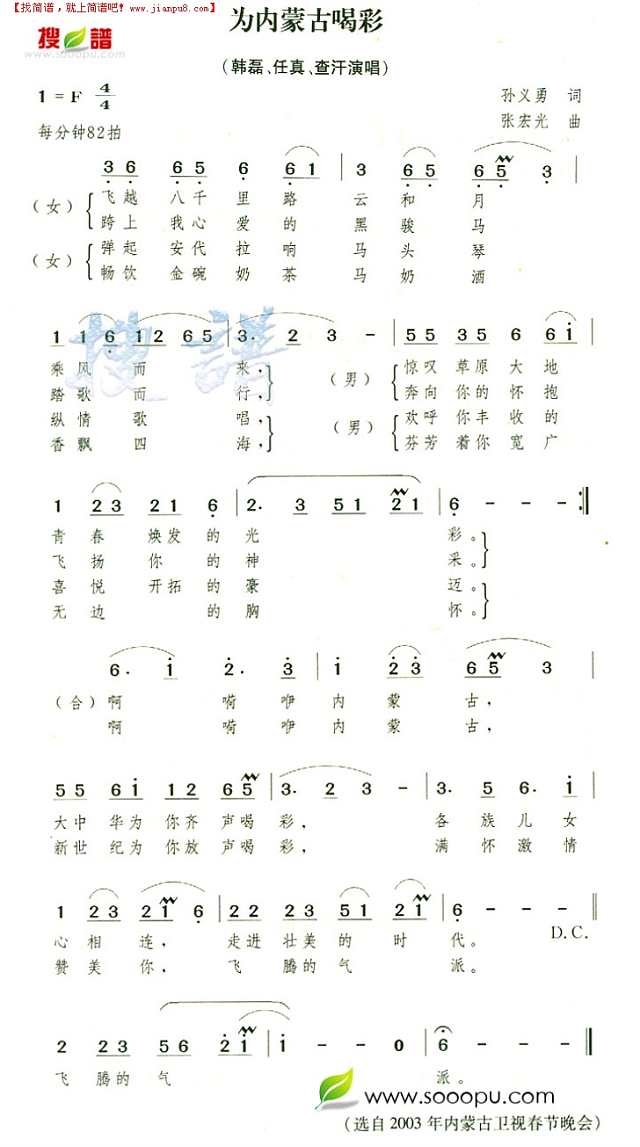 【找简谱，就上简谱吧！www.jianpu8.com】
搜谱
www.sooopu.com
为内蒙古喝彩
(韩磊、任真、查汗演唱)
1 = F 4/4
孙义勇 词
每分钟82拍
张宏光 曲
3 6 6 5 6 6 1 | 3 6 6 5 3 |
(女) 飞越 八千 里 路 云 和 月
跨上 我心 爱 的 黑 骏 马
(女) 弹起 安代 拉 响 马 头 琴
畅饮 金碗 奶 茶 马 奶 酒
1 1 6 1 2 6 5 | 3. 2 3 - | 5 5 3 5 6 6 i |
乘风 而 来, (男) 惊叹 草原 大 地
踏歌 而 行, 奔向 你的 怀 抱
纵情 歌 唱, (男) 欢呼 你丰 收 的
香飘 四 海, 芬芳 着你 宽 广
1 2 3 2 1 6 | 2. 3 5 1 2 1 | 6 - - - :‖
青 春 焕发 的 光 彩。
飞 扬 你 的 神 采。
喜 悦 开拓 的 豪 迈。
无 边 的 胸 怀。
6. i 2. 3 | i 2 3 6 5 3 |
(合) 啊 嗬 咿 内 蒙 古,
啊 嗬 咿 内 蒙 古,
5 5 6 i 1 2 6 5 | 3. 2 3 - | 3. 5 6 i |
大中 华为 你齐 声喝 彩, 各 族 儿 女
新世 纪为 你放 声喝 彩, 满 怀 激 情
1 2 3 2 i 6 | 2 2 2 3 5 1 2 1 | 6 - - - ‖
心 相 连, 走进 壮美 的 时 代。 D.C.
赞 美 你, 飞 腾的 气 派。
2 2 3 5 6 2 i | i - - 0 | 6 - - - ‖
飞 腾的 气 派。
www.sooopu.com
(选自2003年内蒙古卫视春节晚会)